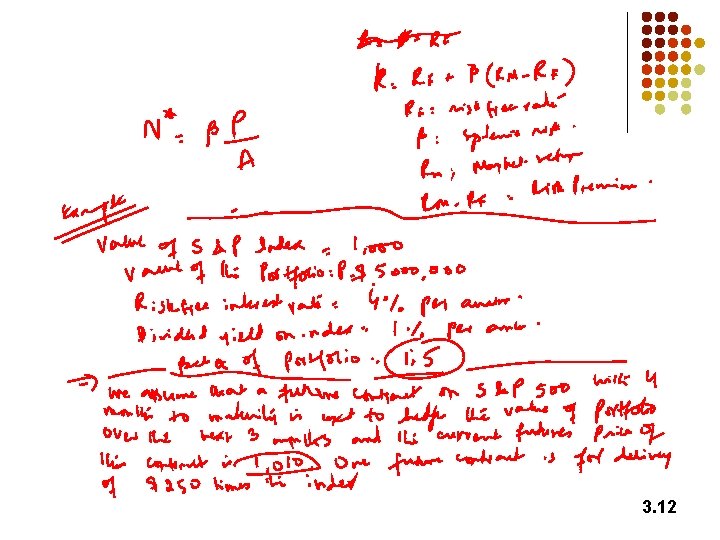 R = RF + β (RM - RF)
RF : risk free rate
N* = β P
A
β : systemic risk .
RM ; Market return
RM - RF = Risk Premium .
Example
Value of S & P Index = 1,000
Value of the Portfolio : P = $ 5000,000
Risk free interest rate = 4% per annum .
Dividend yield on index = 1% per annum .
Beta of Portfolio = 1.5
=> we assume that a future contract on S & P 500 with 4
months to maturity is used to hedge the value of Portfolio
over the next 3 months and the current futures Price of
this contract is 1,010 One future contract is for delivery
of $ 250 times the index
3.12